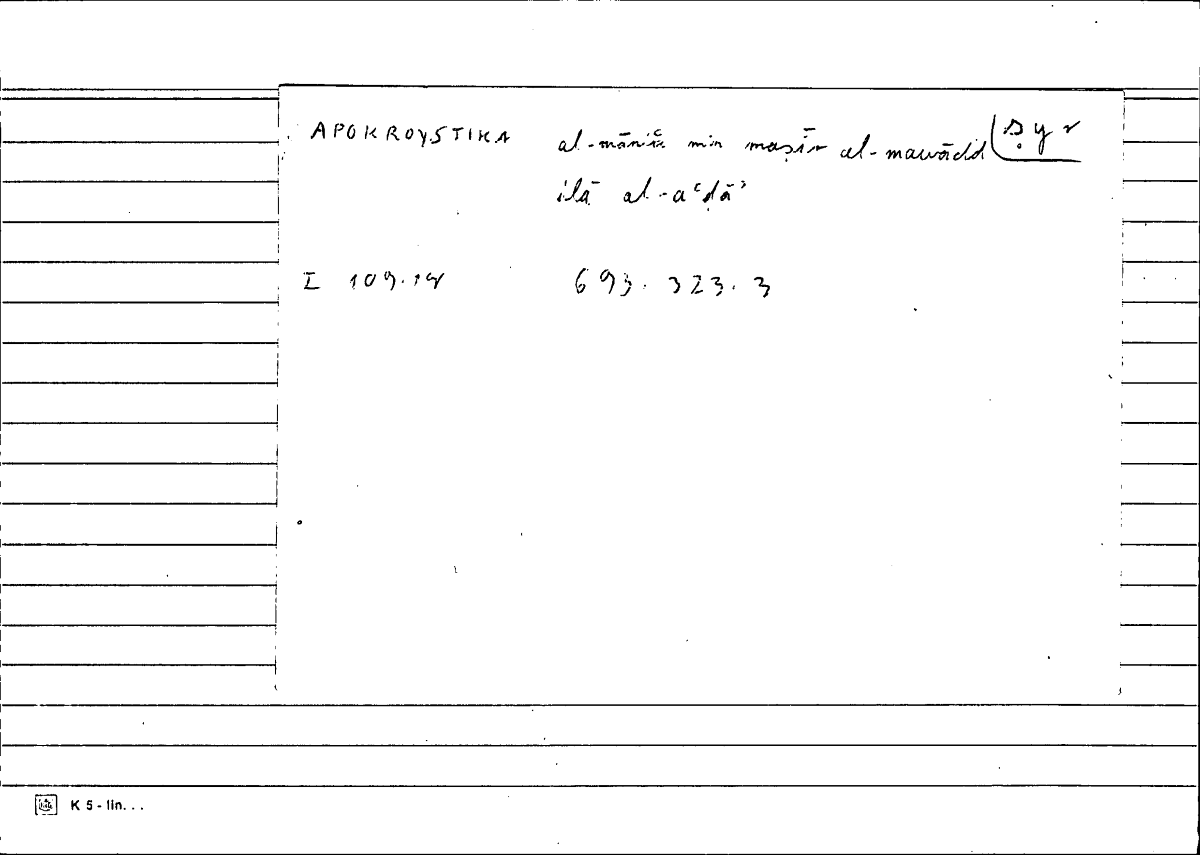 APOKROYSTIKA al-māniʿa min maṣīr al-mawādd ṣyr
ilā al-aʿḍāʾ
I 109.14 693.323.3
K 5 - lin...